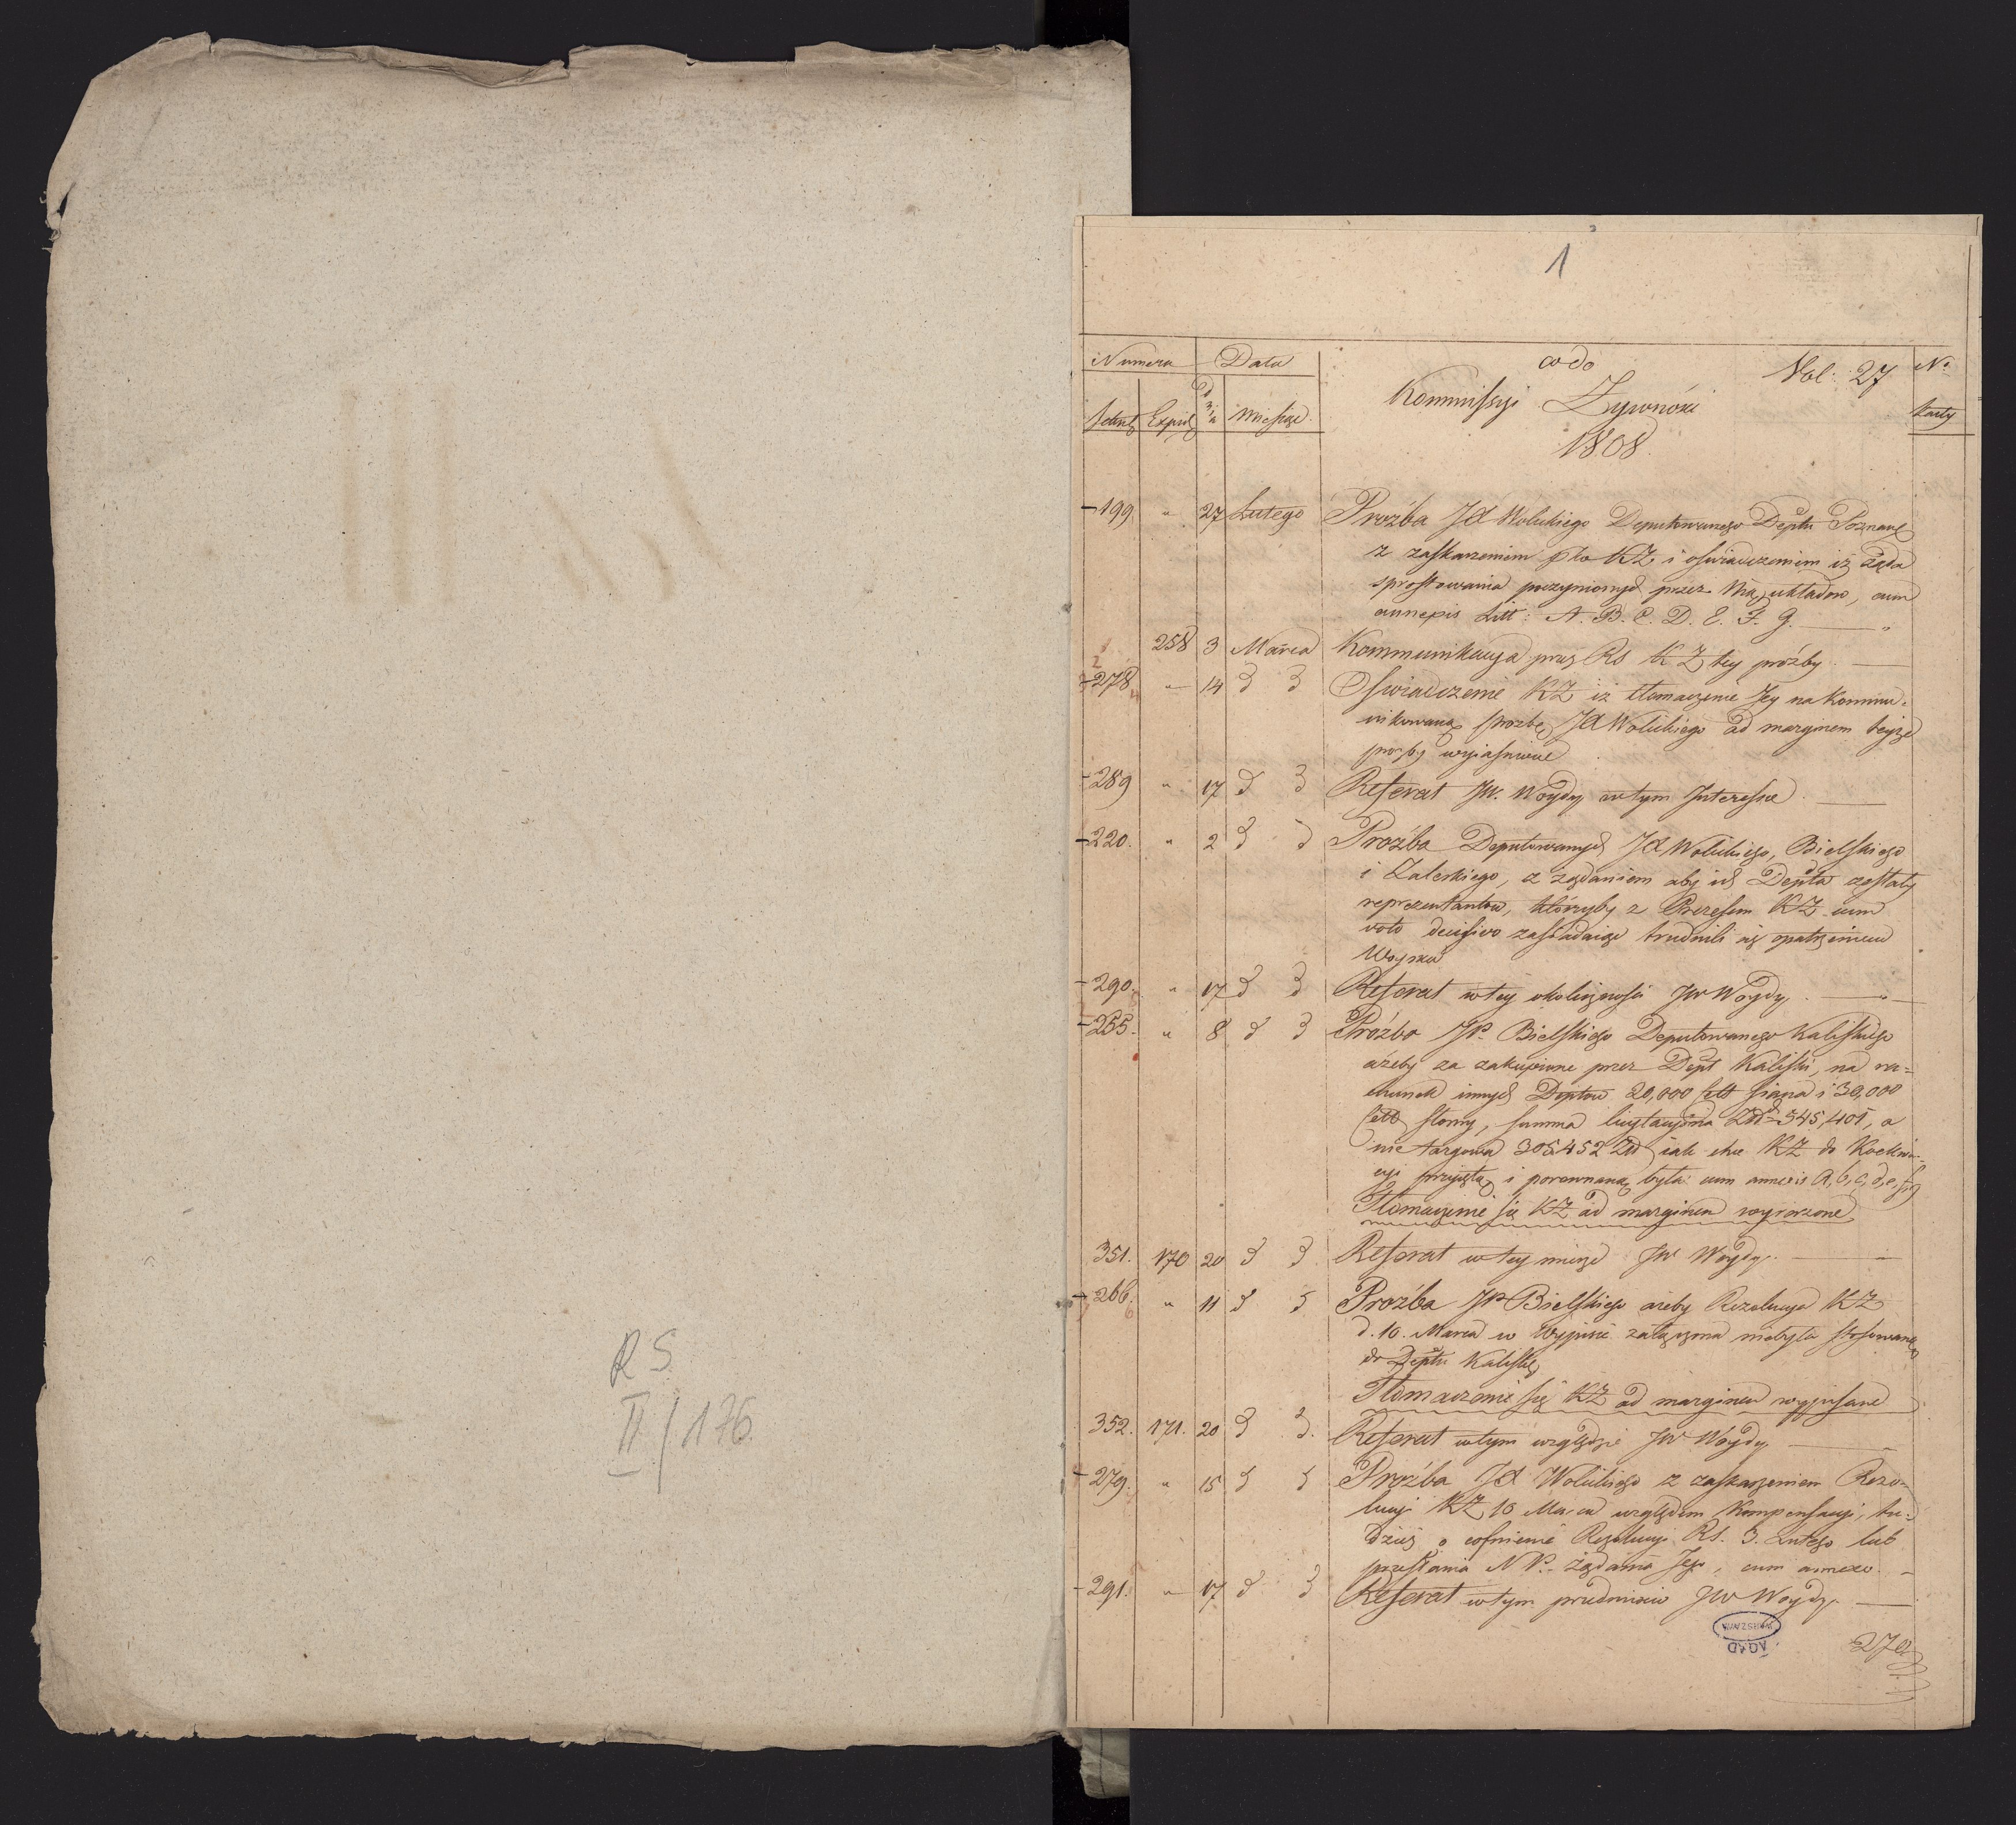 RS.
II/176.
1
Numera Data co do Vol: 27 No
Kommissyi Żywności karty
Miesiąc
1808.
199 " 27 Lutego Prożba Wolickiego Deputowanego Deptu Poznans
z zaskarzeniem KŻ i oswiadczeniem iż żąda
sprostowania poczynionych przez Nią układow, cum
annexis Litt: A. B. C. D. E. F. G. "
258 3 Marca Kommunikacya przez RS KŻ tey próżby.
278 " 14 d d Oswiadczenie KŻ iż tłomaczenie Jey na kommu-
nikowaną prożbę Wolickiego ad marginem teyże
prożby wyiasnione
289 " 17 d d Referat JW. Woydy w tym Interesse.
220. " 2 d d Prożba Deputowanych Wolickiego, Bielskiego
i Zaleskiego, z żądaniem aby ich Depta zesłały
reprezentantow, którzyby z Prezesem KŻ cum
voto decisivo zasiadaiąc trudnili się opatrzeniem
Woyska
290. " 17 d d Referat w tey okoliczności JW Woydy. "
255. " 8 d d Próżba JP. Bielskiego Deputowanego Kaliskiego
ażeby za zakupione przez Dept Kaliski, na ra-
chunek innych Deptow 20,000 Cett siana i 30,000
Cett słomy, summa licytacyjna 345,401, a
nie targowa 305,452 Zł iak chce KŻ do
przyiętą i porownaną była cum annexis a, b, c, d, e, f, g
Tłomaczenie się KŻ ad marginem wyrażone
351. 170 20 d d Referat w tey mierze JW Woydy. "
266. " 11 d d Prożba JP Bielskiego ażeby Rezolucya KŻ
d. 10. Marca w Wypisie załączona niebyła stosowaną
do Deptu Kalisk
Tłomaczenie się KŻ ad marginem wypisane
352. 171. 20 d d. Referat w tym względzie JW Woydy
279. " 15 d d Prożba Wolickiego z zaskarzeniem Rezo-
lucyi KŻ 10 Marca względem Kompensacyi, tu-
dzież o cofnienie Rezolucyi RS. 3. Lutego lub
przesłania NP. żądania Jego, cum annexo.
291. " 17 d d Referat w tym przedmiocie JW Woydy.
AGAD
WARSZAWA
270